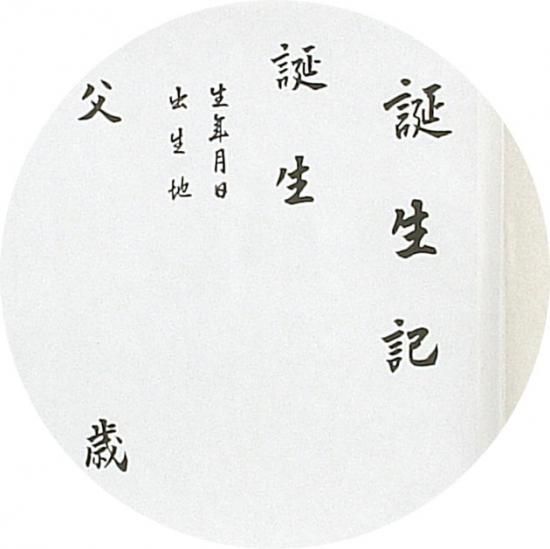 誕生記
誕生
生年月日
出生地
父　歳